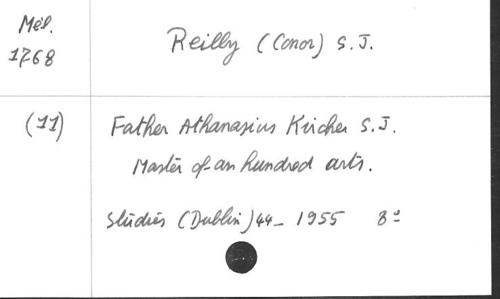 Mél.
1768
Reilly (Conor) S.J.
(11)
Father Athanasius Kircher S.J.
Master of an hundred arts.
Studies (Dublin) 44_ 1955 8º